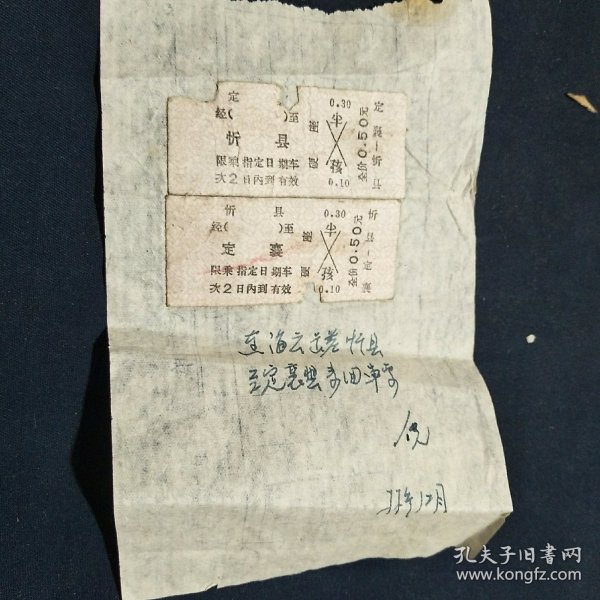 定
0.30
经( )至
硬座
半
忻 县
限乘指定日期车
孩
次2日内到有效
0.10
全价0.50元
定襄—忻县
忻 县
0.30
经( )至
硬座
半
定 襄
限乘指定日期车
孩
次2日内到有效
0.10
全价0.50元
忻县—定襄
忻县
至定襄县来回车
12月
孔夫子旧书网
www.kongfz.com